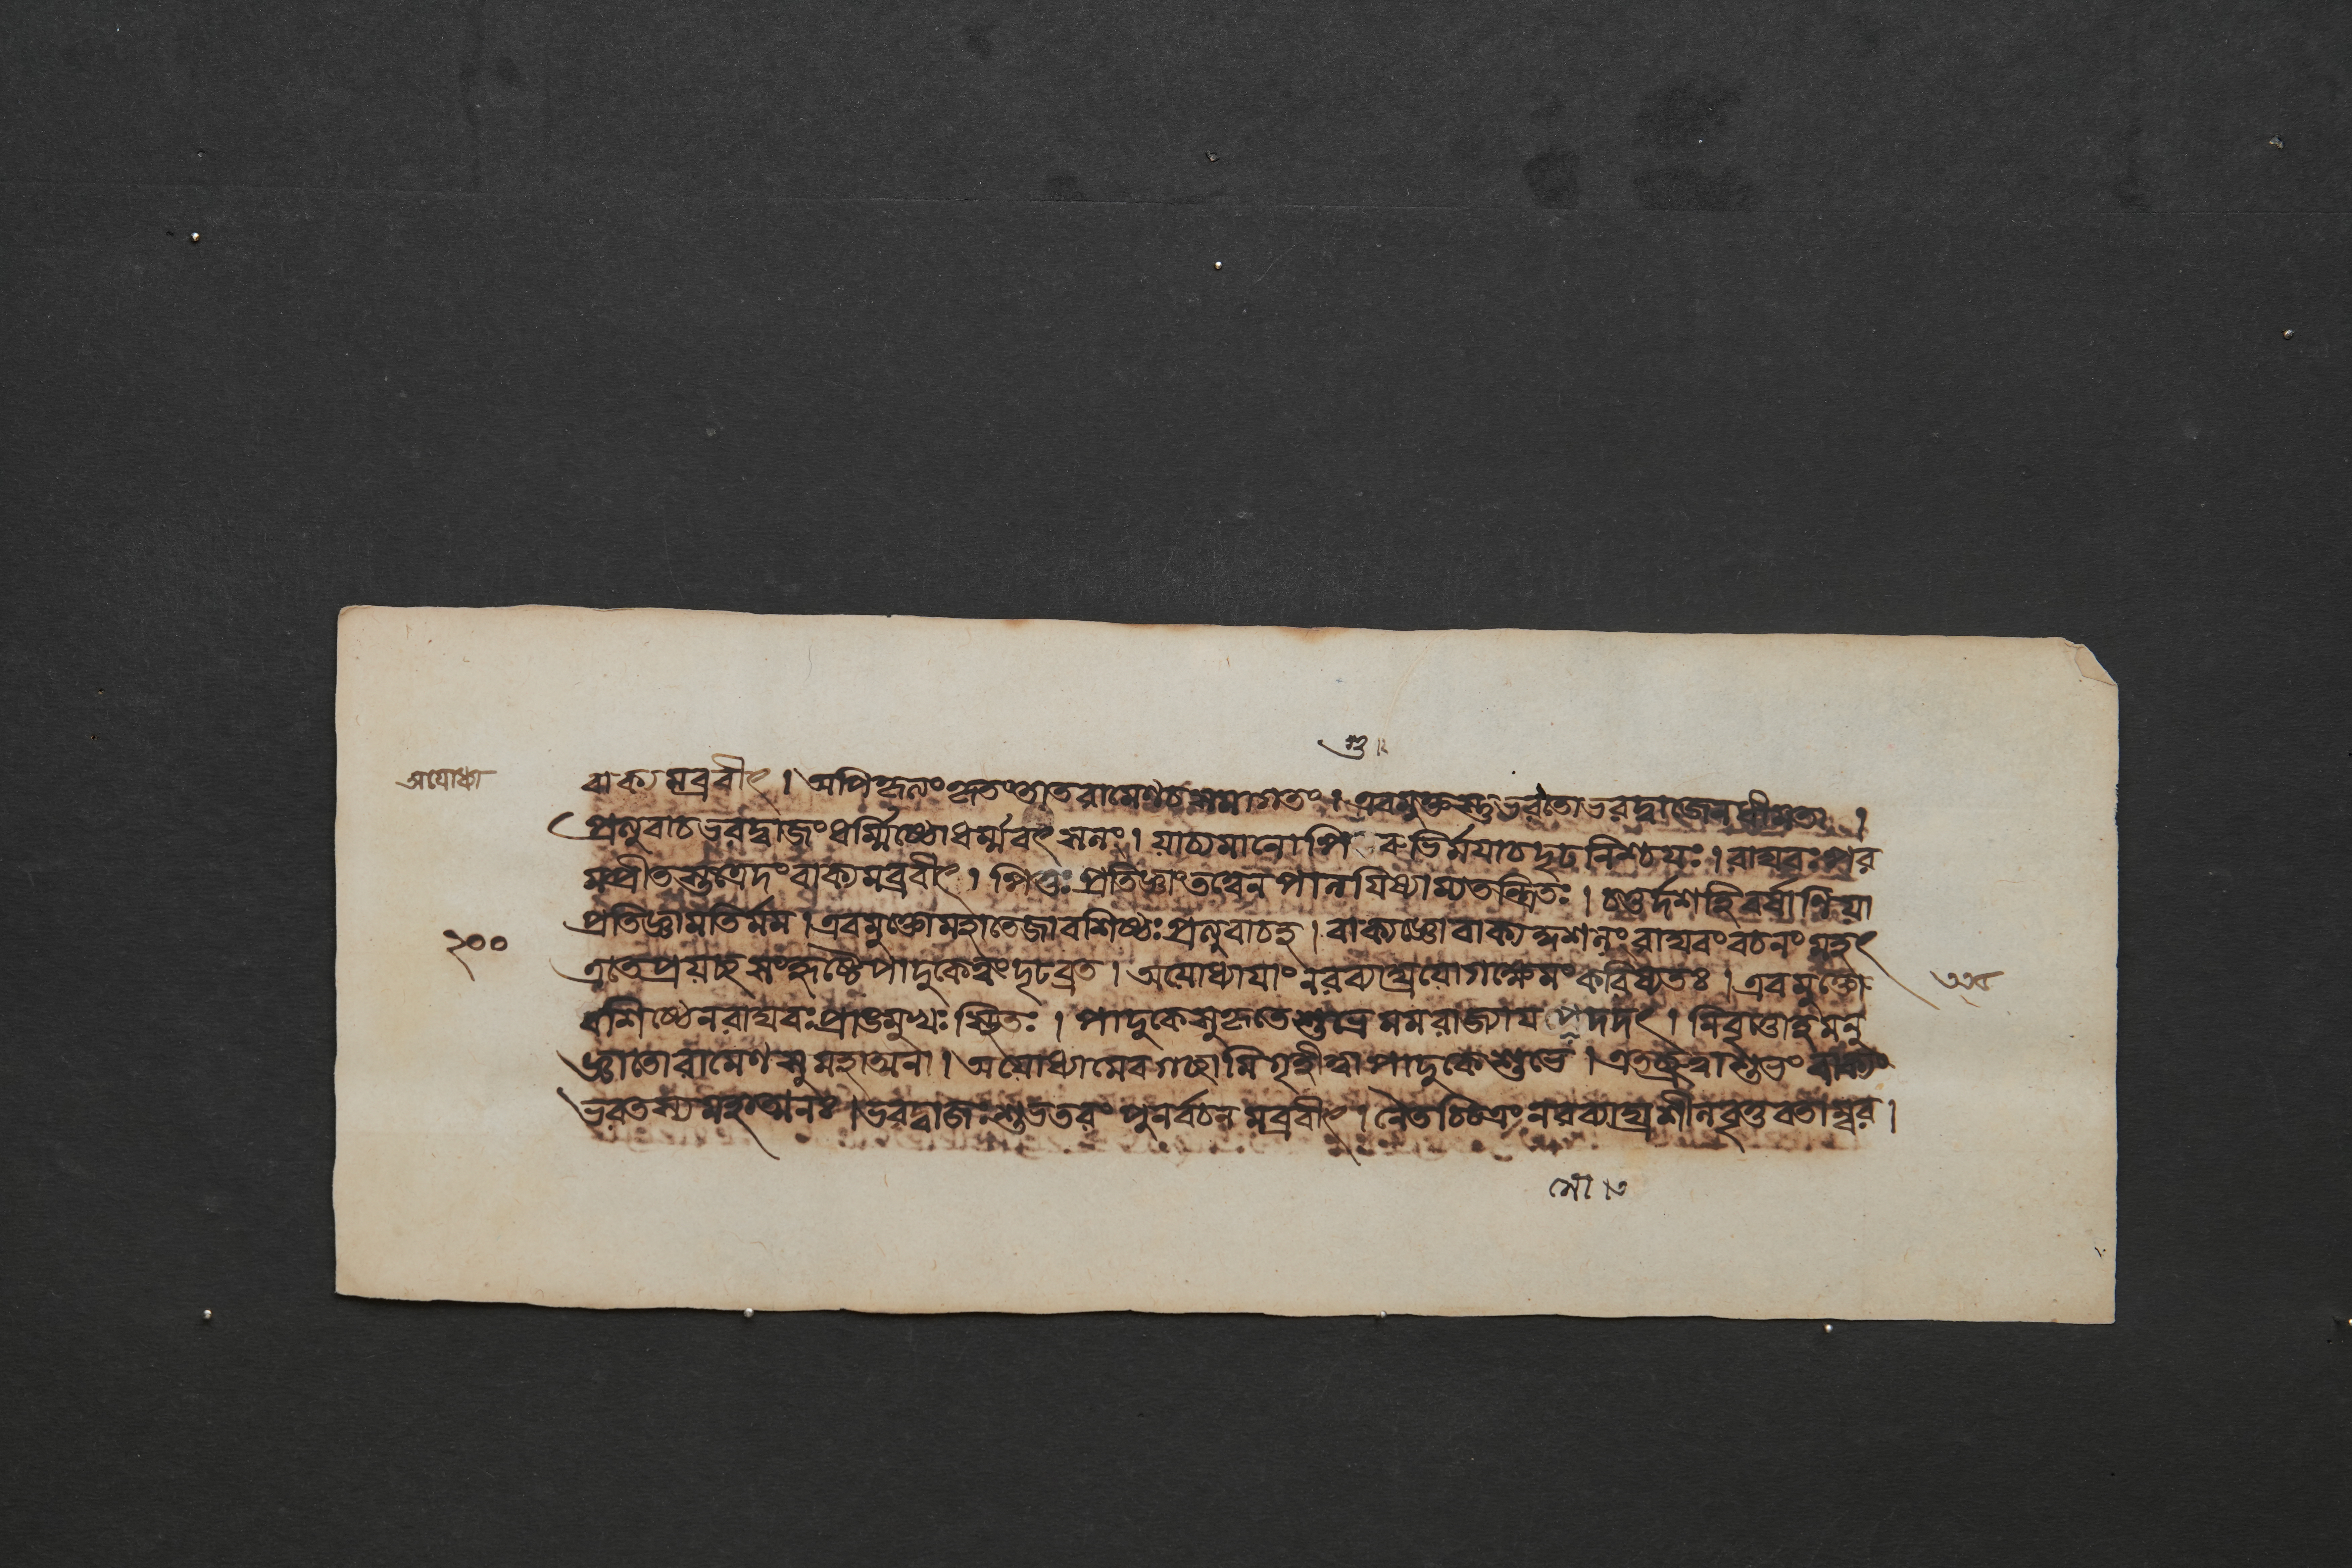 স্তু ৷২
অযোধ্যা
বাক্যমব্রবীৎ । অপিকৃত্যংকৃতংতাতরামেণচসমাগতং । এবমুক্তস্তুভরতোভরদ্বাজেনধীমতা ।
প্রত্যুবাচভরদ্বাজংধর্ম্মিষ্ঠোধর্ম্মবৎসলঃ । যাচ্যমানোপি গুরুভির্ময়াচদৃঢনিশ্চয়ঃ । রাঘবঃপর
মপ্রীতস্তত্রেদংবাক্যমব্রবীৎ । পিতুঃ প্রতিজ্ঞাংতত্ত্বেনপালযিষ্যাম্যতন্দ্রিতঃ । চতুর্দশহিবর্ষাণিয়া
প্রতিজ্ঞামতির্মম । এবমুক্তোমহাতেজাবশিষ্ঠঃপ্রত্যুবাচহ । বাক্যজ্ঞোবাক্যকুশলংরাঘবংবচনংমহৎ
২০০
এতেপ্রয়চ্ছসংহৃষ্টৈপাদুকেত্বংদৃঢব্রত । অযোধ্যাযাংনরব্যাঘ্রযোগক্ষেমংকরিষ্যতঃ । এবমুক্তো
বশিষ্ঠেনরাঘবঃপ্রাঙমুখঃস্থিতঃ । পাদুকেসুকৃতেশুভ্রেমমরাজ্যাযবৈদদৎ । নিবৃত্তোহমনু
জ্ঞাতোরামেণসুমহাত্মনা । অযোধ্যামেবগচ্ছামিগৃহীত্বাপাদুকেশুভে । এতচ্ছ্রুত্বাশুভংবাক্যং
ভরতস্যমহাত্মনঃ । ভরদ্বাজঃশুভতরং পুনর্বচনমব্রবীৎ । নৈতচ্চিত্রংনরব্যাঘ্রশীলবৃত্তবতাম্বর ।